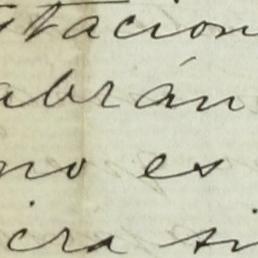 tacion
abrán
no es
icra si